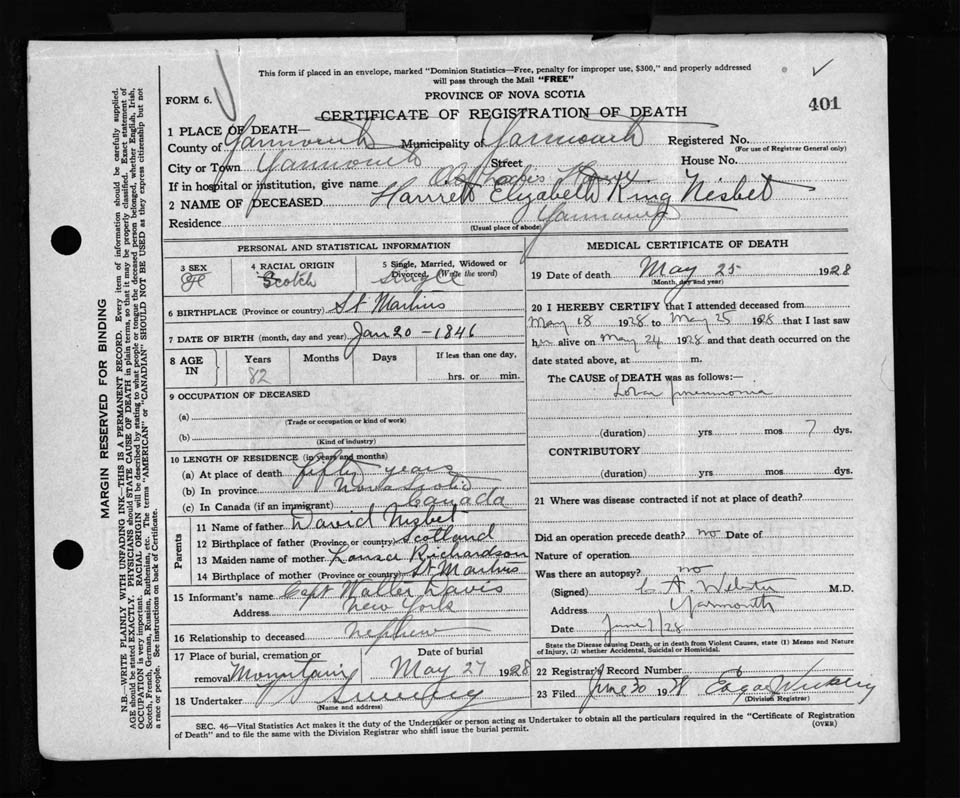 This form if placed in an envelope, marked "Dominion Statistics—Free, penalty for improper use, $300," and properly addressed
will pass through the Mail "FREE"
FORM 6.
PROVINCE OF NOVA SCOTIA
401
CERTIFICATE OF REGISTRATION OF DEATH
1 PLACE OF DEATH—
County of Yarmouth Municipality of Yarmouth Registered No.
(For use of Registrar General only)
City or Town Yarmouth Street House No.
If in hospital or institution, give name Old Ladies Home
2 NAME OF DECEASED Harriett Elizabeth King Nisbet
Residence Yarmouth
(Usual place of abode)
PERSONAL AND STATISTICAL INFORMATION
3 SEX 4 RACIAL ORIGIN 5 Single, Married, Widowed or Divorced, (Write the word)
F Scotch Single
6 BIRTHPLACE (Province or country) St Martins
7 DATE OF BIRTH (month, day and year) Jan 20 - 1846
8 AGE IN Years Months Days If less than one day,
82 hrs. or min.
9 OCCUPATION OF DECEASED
(a)
(Trade or occupation or kind of work)
(b)
(Kind of industry)
10 LENGTH OF RESIDENCE (in years and months)
(a) At place of death fifty years
(b) In province Nova Scotia
(c) In Canada (if an immigrant) Canada
Parents
11 Name of father David Nisbet
12 Birthplace of father (Province or country) Scotland
13 Maiden name of mother Richardson
14 Birthplace of mother (Province or country) St Martins
15 Informant's name Capt Walter Davis
Address New York
16 Relationship to deceased nephew
17 Place of burial, cremation or removal Mountain Date of burial May 27 1928
18 Undertaker Sweeny
(Name and address)
MEDICAL CERTIFICATE OF DEATH
19 Date of death May 25 1928
(Month, day and year)
20 I HEREBY CERTIFY that I attended deceased from
May 18 1928 to May 25 1928 that I last saw
her alive on May 24 1928 and that death occurred on the
date stated above, at m.
The CAUSE of DEATH was as follows:—
Lobar pneumonia
(duration) yrs mos 7 dys.
CONTRIBUTORY
(duration) yrs mos dys.
21 Where was disease contracted if not at place of death?
Did an operation precede death? no Date of
Nature of operation
Was there an autopsy? no
(Signed) C A Webster M.D.
Address Yarmouth
Date June 1/28
State the Disease causing Death, or in death from Violent Causes, state (1) Means and Nature
of Injury, (2) whether Accidental, Suicidal or Homicidal.
22 Registrar's Record Number
23 Filed June 30 1928 Edgar
(Division Registrar)
SEC. 46—Vital Statistics Act makes it the duty of the Undertaker or person acting as Undertaker to obtain all the particulars required in the "Certificate of Registration
of Death" and to file the same with the Division Registrar who shall issue the burial permit. (OVER)
MARGIN RESERVED FOR BINDING
N.B.—WRITE PLAINLY WITH UNFADING INK—THIS IS A PERMANENT RECORD. Every item of information should be carefully supplied.
AGE should be stated EXACTLY. PHYSICIANS should STATE CAUSE OF DEATH in plain terms, so that it may be properly classified. Exact statement of
OCCUPATION is very important. RACIAL ORIGIN will be described by stating to what people or tongue the deceased person belonged, whether English, Irish,
Scotch, French, German, Russian, Ruthenian, etc. The terms "AMERICAN" or "CANADIAN" SHOULD NOT BE USED as they express citizenship but not
a race or people. See instructions on back of Certificate.